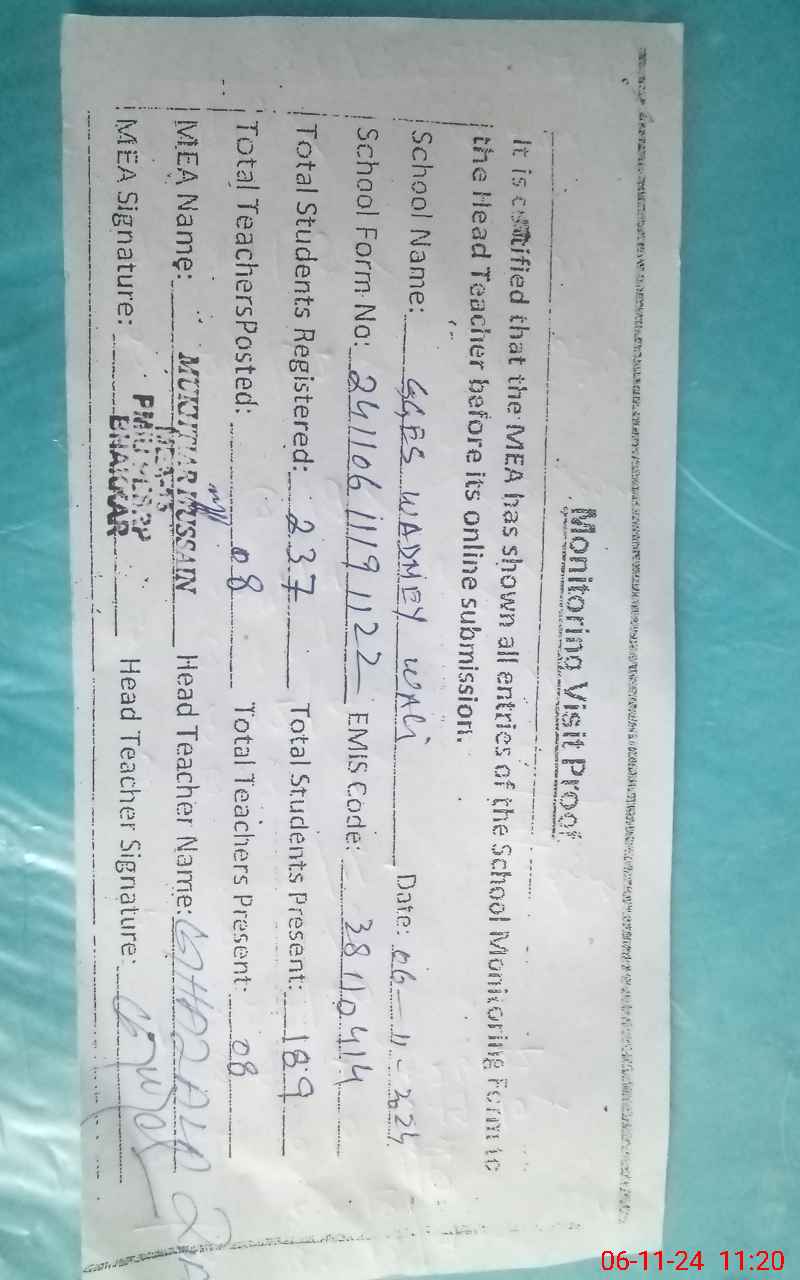 Monitoring Visit Proof
It is certified that the MEA has shown all entries of the School Monitoring Form to
the Head Teacher before its online submission.
School Name: GGES WADHEY WALI Date: 06-11-2024
School Form No: 241106111191122 EMIS Code: 38110414
Total Students Registered: 237 Total Students Present: 189
Total TeachersPosted: 08 Total Teachers Present: 08
MEA Name: MUKHTIAR HUSSAIN Head Teacher Name: GHAZALA
MEA Signature: BHAKKAR Head Teacher Signature:
06-11-24 11:20